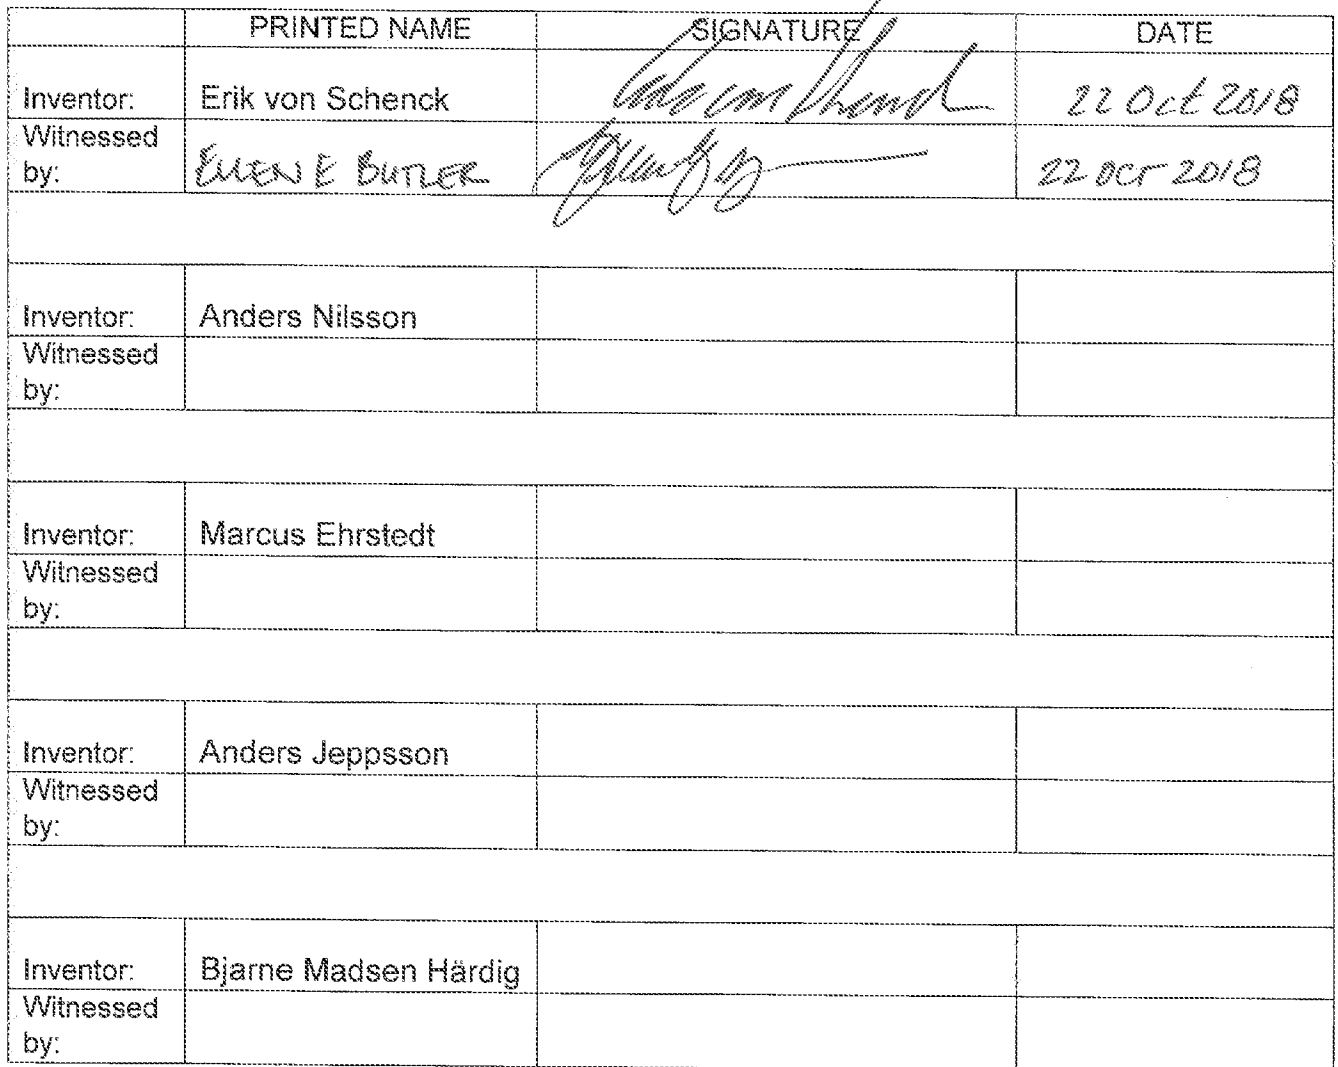 PRINTED NAME SIGNATURE DATE
Inventor: Erik von Schenck 22 Oct 2018
Witnessed
by: ELLEN E BUTLER 22 OCT 2018
Inventor: Anders Nilsson
Witnessed
by:
Inventor: Marcus Ehrstedt
Witnessed
by:
Inventor: Anders Jeppsson
Witnessed
by:
Inventor: Bjarne Madsen Härdig
Witnessed
by: